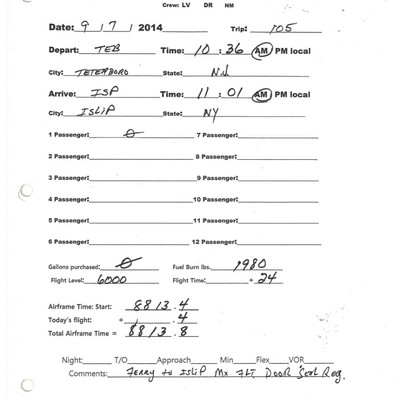 Crew: LV DR NM
Date: 9 / 7 / 2014 Trip: 105
Depart: TEB Time: 10 : 36 AM PM local
City: TETERBORO State: NJ
Arrive: ISP Time: 11 : 01 AM PM local
City: ISLIP State: NY
1 Passenger: 0 7 Passenger:
2 Passenger: 8 Passenger:
3 Passenger: 9 Passenger:
4 Passenger: 10 Passenger:
5 Passenger: 11 Passenger:
6 Passenger: 12 Passenger:
Gallons purchased: 0 Fuel Burn lbs. 1980
Flight Level: 6000 Flight Time: + 24
Airframe Time: Start: 8813.4
Today's flight: + .4
Total Airframe Time = 8813.8
Night: T/O Approach Min Flex VOR
Comments: Ferry to ISLIP Mx FLT DOOR Seal Reg.